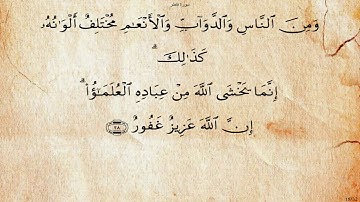 سورة فاطر
وَمِنَ ٱلنَّاسِ وَٱلدَّوَآبِّ وَٱلْأَنْعَٰمِ مُخْتَلِفٌ أَلْوَٰنُهُۥ
كَذَٰلِكَ ۗ
إِنَّمَا يَخْشَى ٱللَّهَ مِنْ عِبَادِهِ ٱلْعُلَمَٰٓؤُا۟ ۗ
إِنَّ ٱللَّهَ عَزِيزٌ غَفُورٌ ٢٨